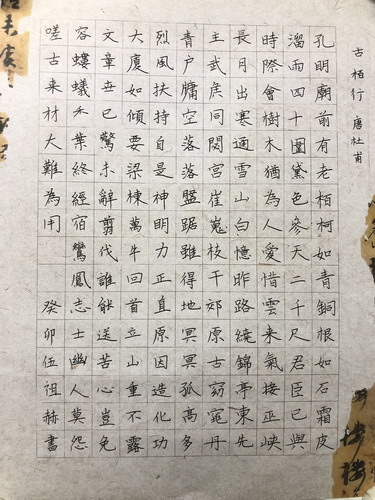 古栢行 唐杜甫
孔明廟前有老栢柯如青銅根如石霜皮
溜雨四十圍黛色參天二千尺君臣已與
時際會樹木猶為人愛惜雲來氣接巫峽
長月出寒通雪山白憶昨路繞錦亭東先
主武侯同閟宮崔嵬枝干郊原古窈窕丹
青户牖空落落盤踞雖得地冥冥孤高多
烈風扶持自是神明力正直原因造化功
大廈如傾要梁棟萬牛回首立山重不露
文章世已驚未辭剪伐誰能送苦心豈免
容螻蟻香葉終經宿鸞鳳志士幽人莫怨
嗟古來材大難為用 癸卯伍祖赫書